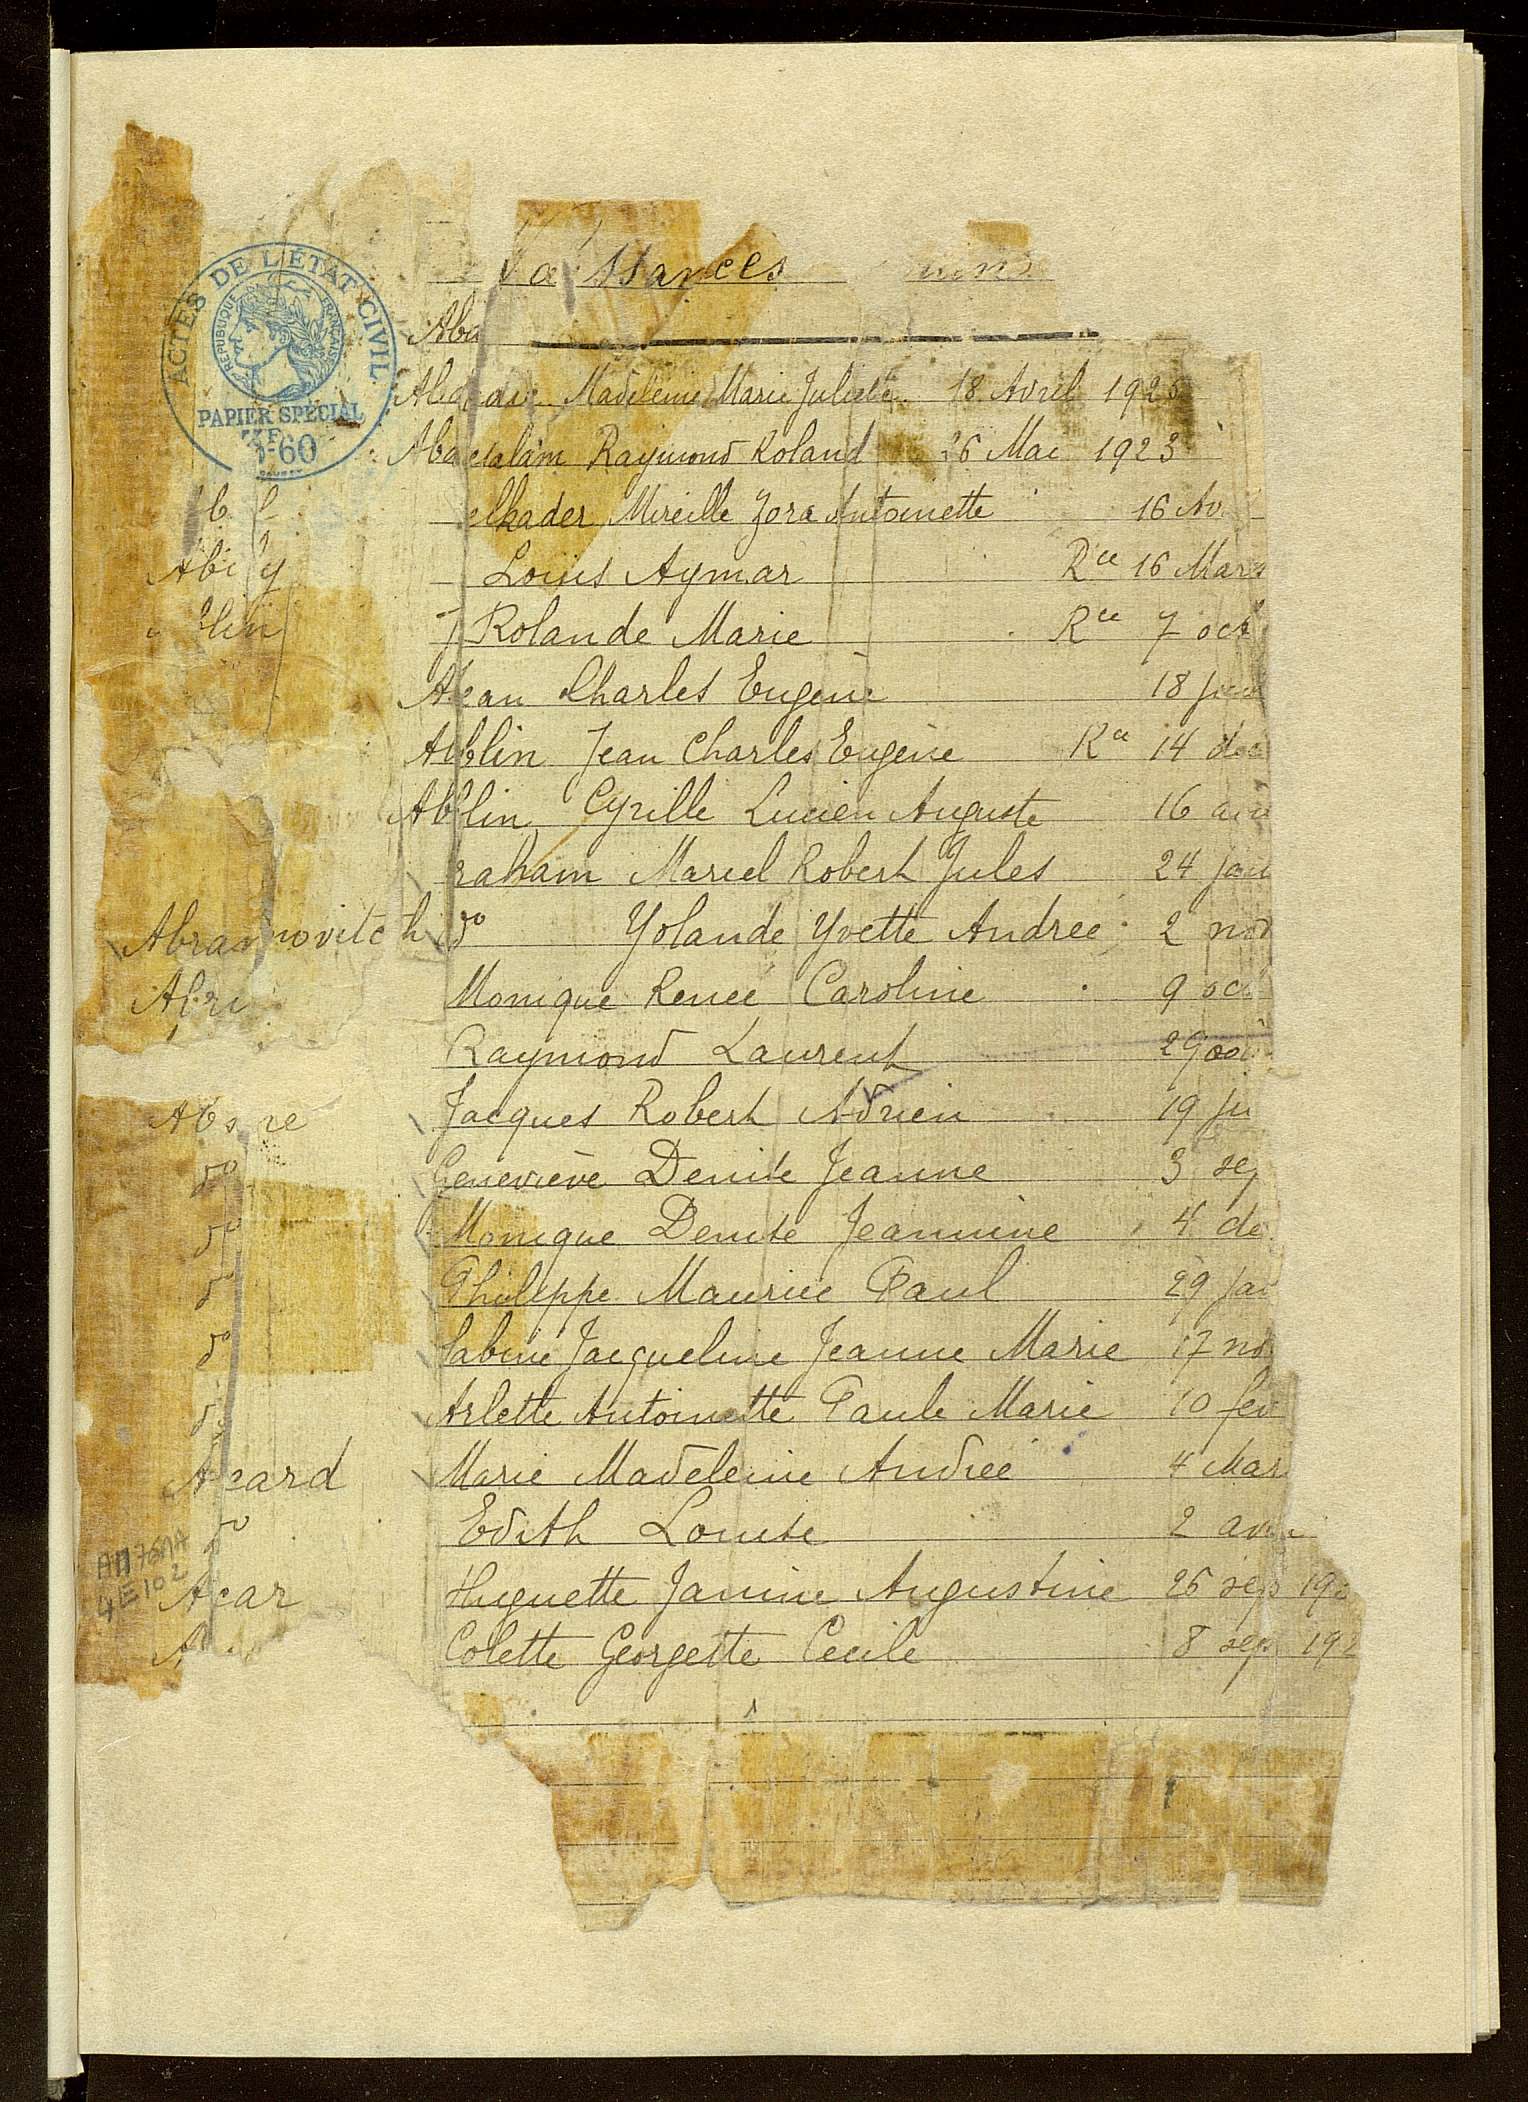 ACTES DE L'ÉTAT CIVIL
RÉPUBLIQUE FRANÇAISE
PAPIER SPÉCIAL
60
Madeleine Marie Juliette 18 Avril 192
Raymond Roland 26 Mai 1923
elkader Mireille Zora Antoinette 16 Av
Louis Aymar Rce 16 Mars
Rolande Marie Rce 7 oct
Jean Charles Eugène 18
Ablin Jean Charles Eugène Rce 14 dec
Ablin Cyrille Lucien Auguste 16
raham Marcel Robert Jules 24 jan
Abramovitch do Yolande Yvette Andrée 2 nov
Abri Monique Renée Caroline 9 oct
Raymond Laurent 29
Jacques Robert Adrien 19 ju
do Geneviève Denise Jeanne 3 sep
do Monique Denise Jeannine 4 de
do Philippe Maurice Paul 29 jan
do Sabine Jacqueline Jeanne Marie 17 no
Arlette Antoinette Paule Marie 10 fev
Acard Marie Madeleine Andrée 4 Mar
do Edith Louise 2
Acar Huguette Janine Augustine 26 sep 192
Colette Georgette Cecile 8 sep 192
4E102